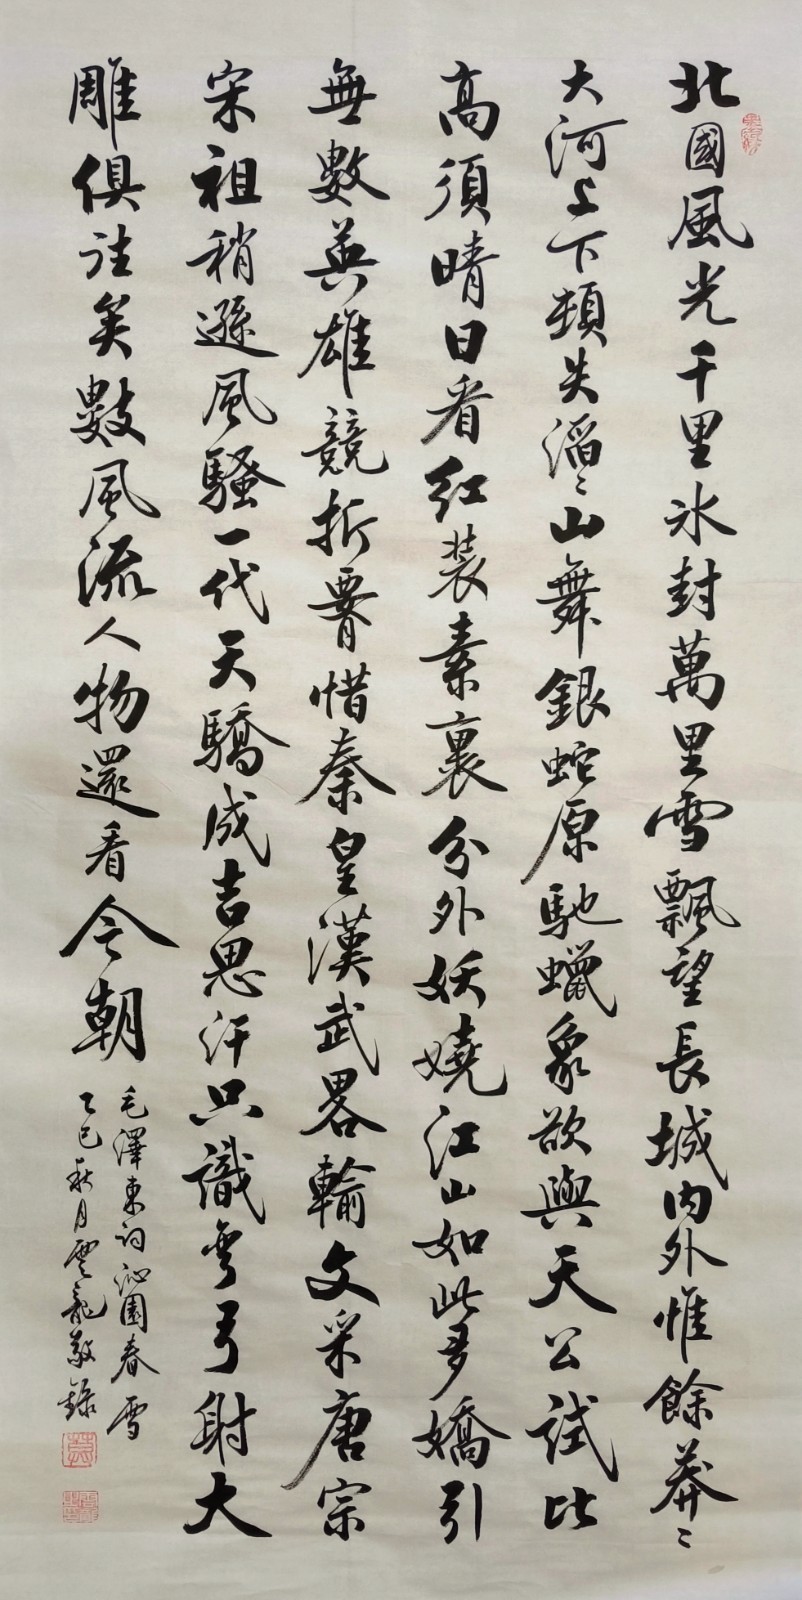 北國風光千里冰封萬里雪飄望長城内外惟餘莽〻
大河上下頓失滔〻山舞銀蛇原馳蠟象欲與天公試比
高須晴日看紅裝素裹分外妖嬈江山如此多嬌引
無數英雄競折要惜秦皇漢武畧輸文采唐宗
宋祖稍遜風騷一代天驕成吉思汗只識彎弓射大
雕俱往矣數風流人物還看今朝
毛澤東詞沁園春雪
乙巳秋月雲龍敬錄